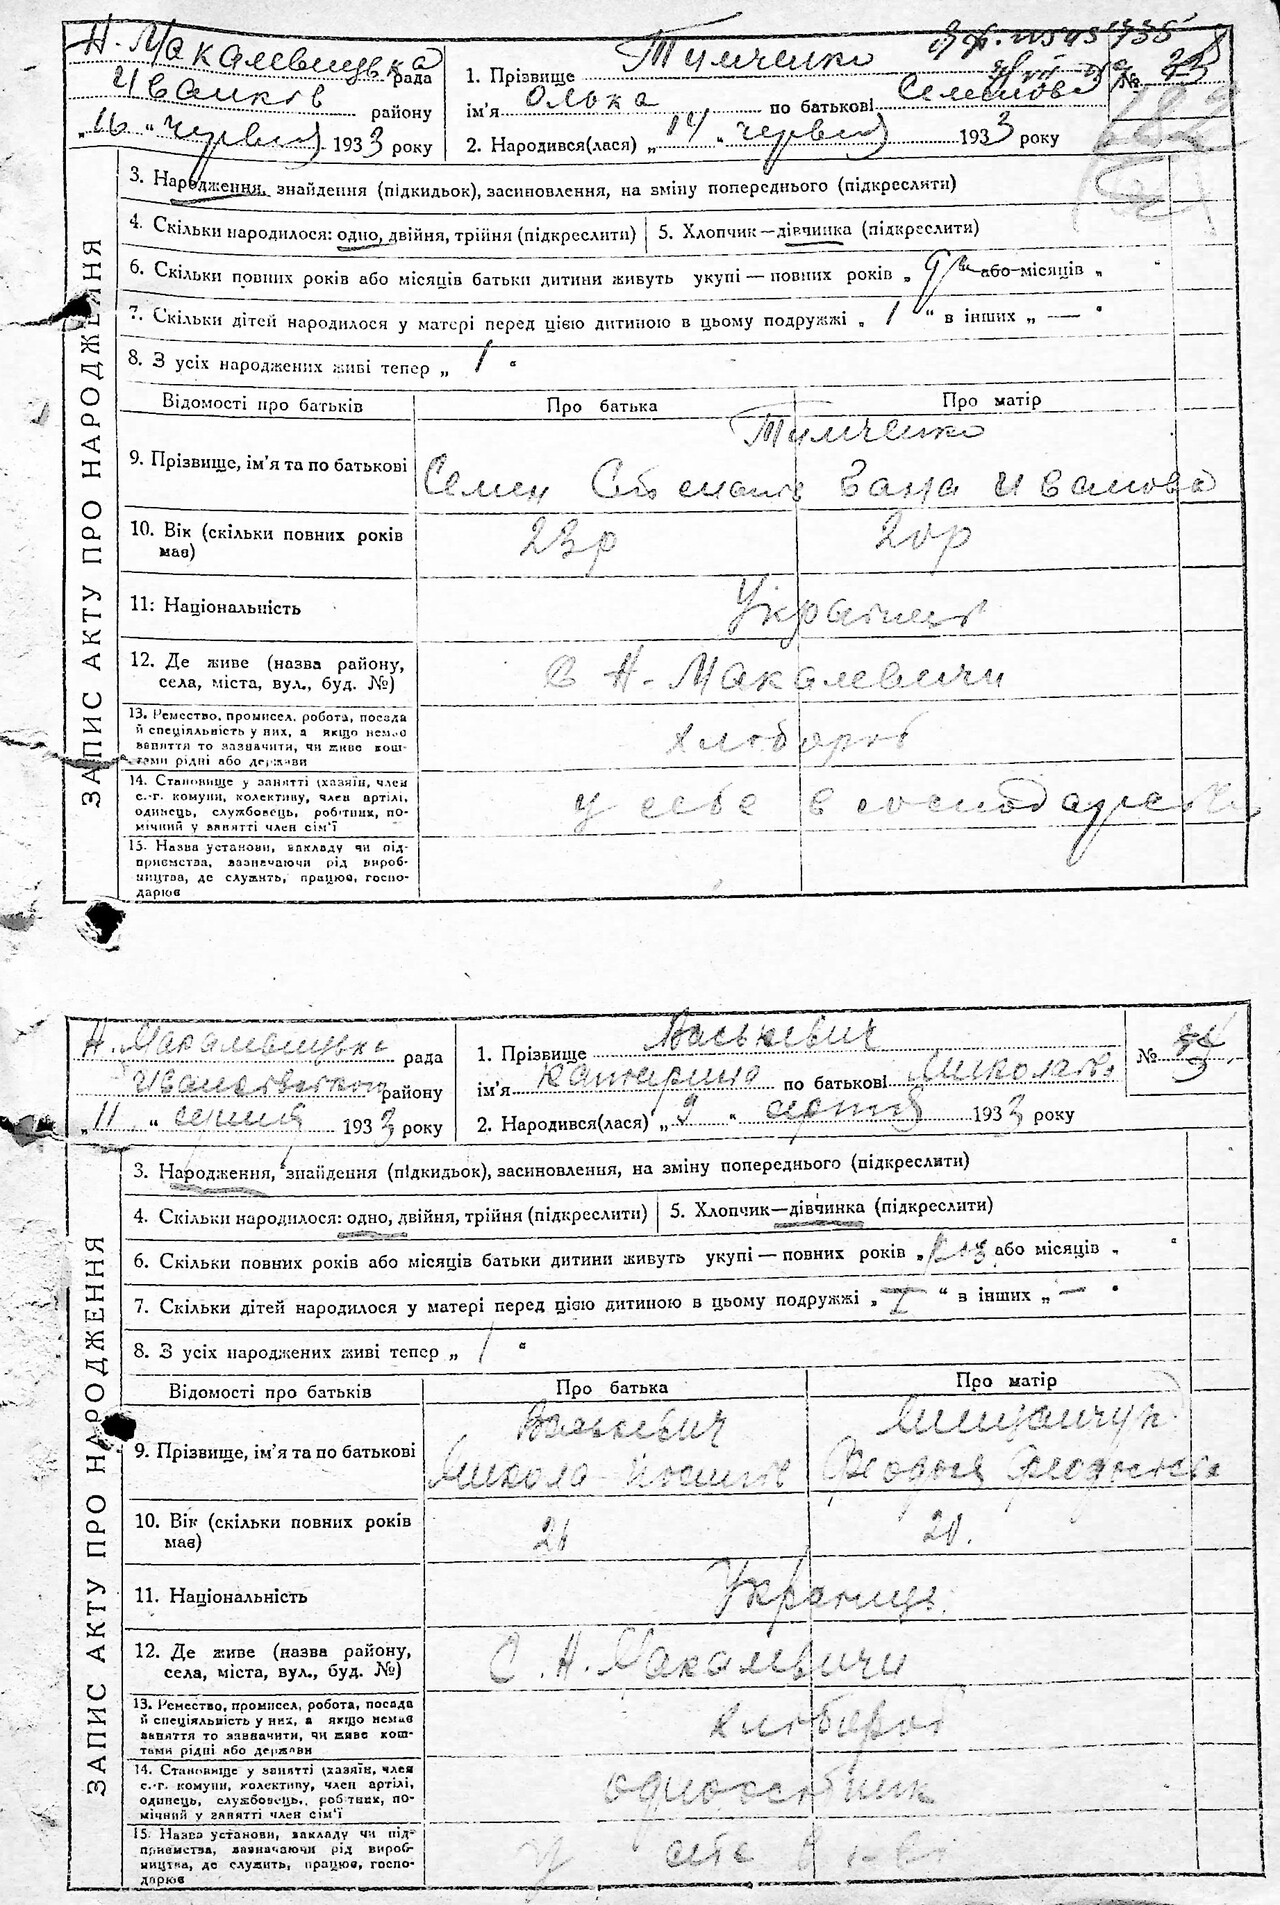 Н. Макалевицька рада
Иванків району
„16“ червня 1933 року
1. Прізвище Тимченко
ім'я Олька по батькові Семенова
2. Народився(лася) „14“ червня 1933 року
№
3. Народження, знайдення (підкидьок), засиновлення, на зміну попереднього (підкреслити)
4. Скільки народилося: одно, двійня, трійня (підкреслити) 5. Хлопчик—дівчинка (підкреслити)
6. Скільки повних років або місяців батьки дитини живуть укупі — повних років „ або місяців „ “
7. Скільки дітей народилося у матері перед цією дитиною в цьому подружжі „ 1 “ в інших „ — “
8. З усіх народжених живі тепер „ 1 “
ЗАПИС АКТУ ПРО НАРОДЖЕННЯ
Відомості про батьків Про батька Про матір
Тимченко
9. Прізвище, ім'я та по батькові Семен Ганна Иванова
10. Вік (скільки повних років має) 23р 20р
11: Національність Українці
12. Де живе (назва району, села, міста, вул., буд. №) в Н-Макалевичи
13. Ремество, промисел, робота, посада
й спеціяльність у них, а якщо немає
заняття то зазначити, чи живе кош-
тами рідні або держави
хлібороб
14. Становище у занятті (хазяїн, член
с.-г. комуни, колективу, член артілі,
одинець, службовець, робітник, по-
мічний у занятті член сім'ї
у себе в господарстві
15. Назва установи, закладу чи під-
приємства, зазначаючи рід вироб-
ництва, де служить, працює, госпо-
дарює
Н. Макалевицька рада
району
„11“ серпня 1933 року
1. Прізвище Васькевич
ім'я Катерина по батькові Миколаєва
2. Народився(лася) „9“ серпня 1933 року
№
3. Народження, знайдення (підкидьок), засиновлення, на зміну попереднього (підкреслити)
4. Скільки народилося: одно, двійня, трійня (підкреслити) 5. Хлопчик—дівчинка (підкреслити)
6. Скільки повних років або місяців батьки дитини живуть укупі — повних років „ або місяців „ “
7. Скільки дітей народилося у матері перед цією дитиною в цьому подружжі „ I “ в інших „ — “
8. З усіх народжених живі тепер „ 1 “
ЗАПИС АКТУ ПРО НАРОДЖЕННЯ
Відомості про батьків Про батька Про матір
Васькевич
9. Прізвище, ім'я та по батькові Микола Феодосія
10. Вік (скільки повних років має) 21.
11. Національність Українці
12. Де живе (назва району, села, міста, вул., буд. №) С. Н. Макалевичи
13. Ремество, промисел, робота, посада
й спеціяльність у них, а якщо немає
заняття то зазначити, чи живе кош-
тами рідні або держави
хлібороб
14. Становище у занятті (хазяїн, член
с.-г. комуни, колективу, член артілі,
одинець, службовець, робітник, по-
мічний у занятті член сім'ї
одноосібник
15. Назва установи, закладу чи під-
приємства, зазначаючи рід вироб-
ництва, де служить, працює, госпо-
дарює
у себе в